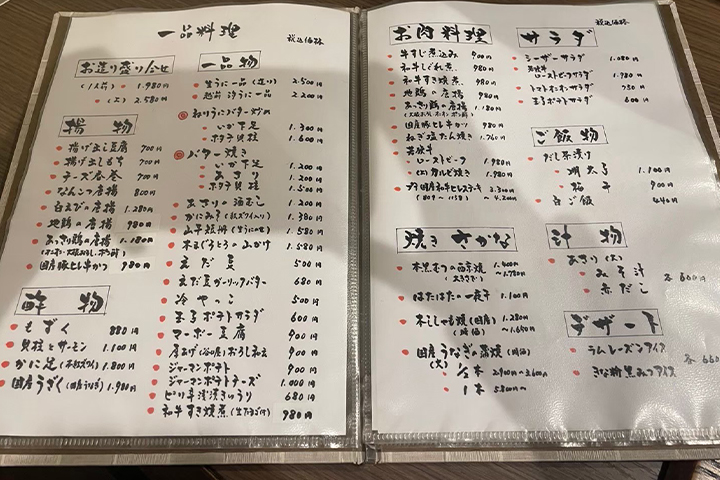 一品料理 税込価格
お造り盛り合せ
(1人前) 1.980円
(上) 2.580円
揚物
揚げ出し豆腐 700円
揚げ出しもち 700円
チーズ春巻 700円
なんこつ唐揚 800円
白えびの唐揚 1.280円
地鶏の唐揚 980円
あっさり鶏の唐揚 1.180円
国産豚ヒレ串かつ 980円
酢物
もずく 880円
貝柱とサーモン 1.100円
かに足 1.900円
国産うざく (国産うなぎ) 1.980円
一品物
生うに一品 (造り) 2.500円
越前汐うに一品 2.200円
ねりうにバター炒め
いか下足 1.300円
ホタテ貝柱 1.600円
バター焼き
いか下足 1.200円
あさり 1.200円
ホタテ貝柱 1.500円
あさりの酒むし 1.200円
かにみそ (紅ズワイ入り) 1.380円
山芋短冊 (生うにのせ) 1.580円
本まぐろとろの山かけ 1.580円
えだ豆 500円
えだ豆ガーリックバター 680円
冷やっこ 500円
玉子ポテトサラダ 600円
マーボー豆腐 900円
厚あげ (谷口屋) おろしネギ 900円
ジャーマンポテト 900円
ジャーマンポテトチーズ 1.000円
ピリ辛浅漬きゅうり 680円
和牛すき焼煮 (生たまご付) 980円
お肉料理
牛すじ煮込み 900円
和牛しぐれ煮 980円
和牛すき焼煮 980円
地鶏の唐揚 980円
あっさり鶏の唐揚 1.180円
国産豚ヒレ串カツ 980円
ねぎ塩たん焼き 1.760円
若狭牛
ローストビーフ 1.980円
(上)カルビ焼 1.980円
プチ国産和牛ヒレステーキ 3.300円
(80g〜115g) 〜4.200円
焼きさかな
本黒むつの西京焼 1.400円
(大きさで) 〜1.780円
はたはたの一夜干 1.100円
本ししゃも焼 (国産) 1.280円
(時価) 〜1.650円
国産うなぎの蒲焼 (時価)
(大)
1/2本 2.900円〜3.600円
1本 5.800円〜
サラダ 税込価格
シーザーサラダ 1.080円
若狭牛
ローストビーフサラダ 1.980円
トマトオニオンサラダ 750円
玉子ポテトサラダ 600円
ご飯物
だし茶漬け
明太子 1.100円
梅干 900円
白ご飯 440円
汁物
あさり (大)
みそ汁
赤だし
各600円
デザート
ラムレーズンアイス
きな粉黒みつアイス
各660円